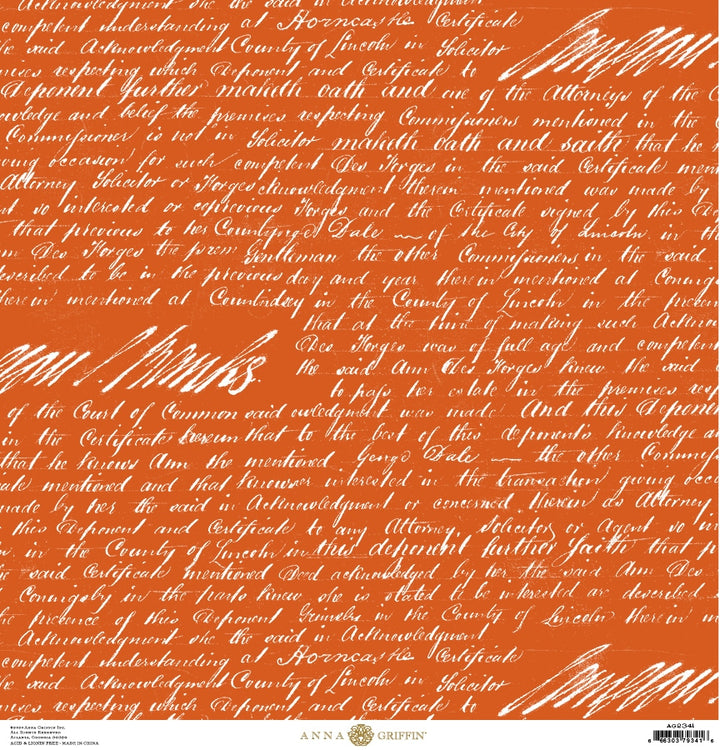 Acknowledgment she the said in Acknowledgment
competent understanding at Horncastle Certificate
he said Acknowledgment County of Lincoln in Solicitor
mises respecting which Deponent and Certificate to
Deponent further maketh oath and one of the Attorneys of the C
owledge and belief the premises respecting Commissioners mentioned in the
Commissioner is not in Solicitor maketh oath and saith that he
ving occasion for such competent Des Forges in the said Certificate men
Attorney Solicitor or Forges cknowledgment therein mentioned was made by
nt so interested or copievious Forges and the Certificate signed by this De
that previous to her County Dale of the City of Lincoln in th
m Des Forges the prem Gentleman the other Commissioners in the said
escribed to be in the previous day and year therein mentioned at Conings
herein mentioned at Lindsey in the County of Lincoln in the presen
that at the time of making such Acknow
Des Forges was of full age and competen
the said Ann Des Forges knew the said
to pass her estate in the premises resp
of the Court of Common said owledgment was made And this Deponen
in the Certificate hereunthat to the best of this deponents knowledge a
that he knows Ann the mentioned George Dale the other Commis
ate mentioned and that knowner interested in the transaction giving occa
made by her the said in Acknowledgment or concerned therein as Attorney
this Deponent and Certificate to any Attorney Solicitor or Agent so in
in the County of Lincoln in this deponent further saith that p
said Certificate mentioned Deed acknowledged by her the said Ann Des
Coningsby in the parts knew she is stated to be interested are described
he presence of this Deponent Grimsby in the County of Lincoln therein m
Acknowledgment she the said in Acknowledgment
competent understanding at Horncastle Certificate
he said Acknowledgment County of Lincoln in Solicitor
mises respecting which Deponent and Certificate to
©Anna Griffin Inc.
All Rights Reserved
Atlanta, Georgia
ACID & LIGNIN FREE • MADE IN CHINA
ANNA GRIFFIN®
AG2341